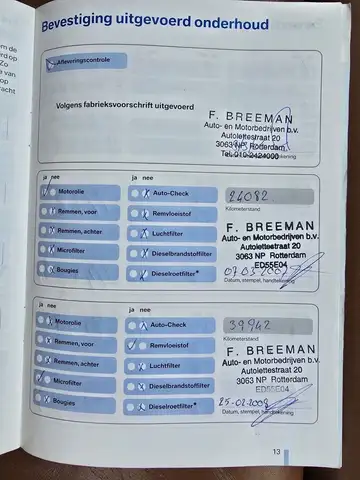 Bevestiging uitgevoerd onderhoud
Afleveringscontrole
Volgens fabrieksvoorschrift uitgevoerd
F. BREEMAN
Auto- en Motorbedrijven b.v.
Autolettestraat 20
3063 NP Rotterdam
Tel. 010-2424000
ja nee
ja nee
Motorolie
Auto-Check
24082
Remmen, voor
Remvloeistof
Kilometerstand
Remmen, achter
Luchtfilter
F. BREEMAN
Auto- en Motorbedrijven b.v.
Autolettestraat 20
3063 NP Rotterdam
ED55E04
Microfilter
Dieselbrandstoffilter
Bougies
Dieselroetfilter*
07.03.2007
Datum, stempel, handtekening
ja nee
ja nee
Motorolie
Auto-Check
39942
Remmen, voor
Remvloeistof
Kilometerstand
Remmen, achter
Luchtfilter
F. BREEMAN
Auto- en Motorbedrijven b.v.
Autolettestraat 20
3063 NP Rotterdam
ED55E04
Microfilter
Dieselbrandstoffilter
Bougies
Dieselroetfilter*
25-02-2008
Datum, stempel, handtekening
13